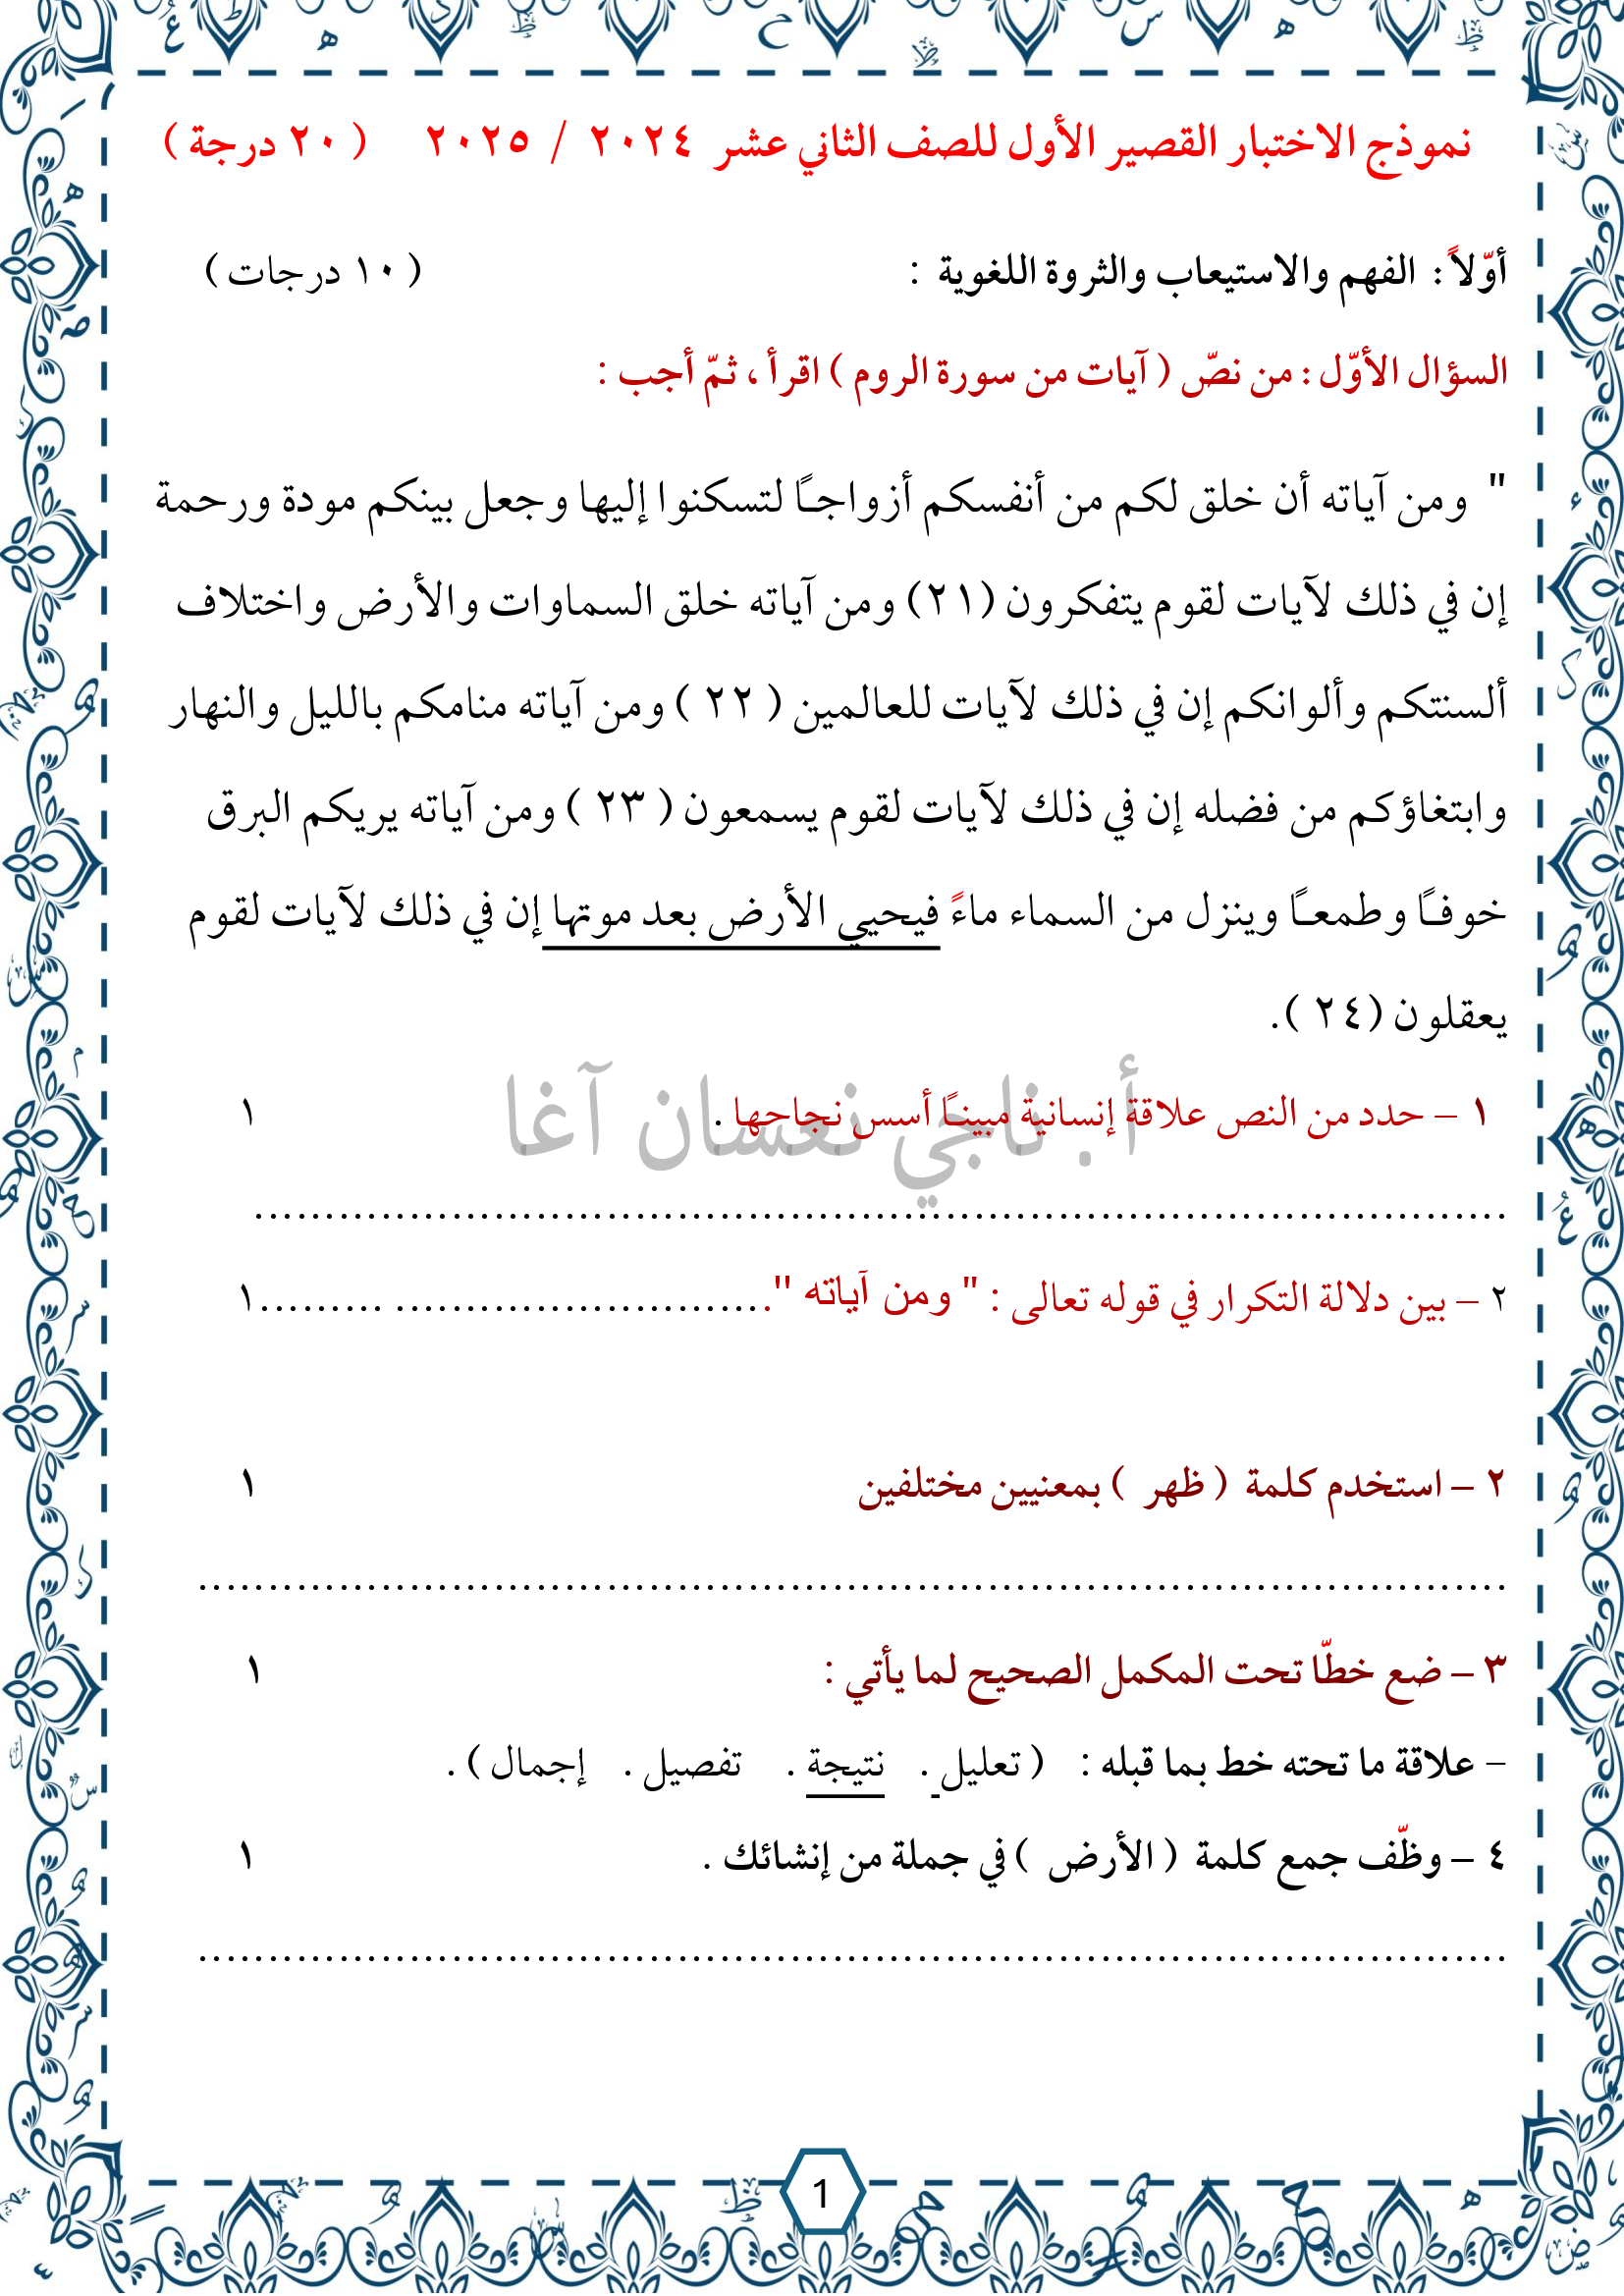 نموذج الاختبار القصير الأول للصف الثاني عشر ٢٠٢٤ / ٢٠٢٥ ( ٢٠ درجة )
أوّلاً : الفهم والاستيعاب والثروة اللغوية : ( ١٠ درجات )
السؤال الأوّل : من نصّ ( آيات من سورة الروم ) اقرأ ، ثمّ أجب :
" ومن آياته أن خلق لكم من أنفسكم أزواجـًا لتسكنوا إليها وجعل بينكم مودة ورحمة
إن في ذلك لآيات لقوم يتفكرون (٢١) ومن آياته خلق السماوات والأرض واختلاف
ألسنتكم وألوانكم إن في ذلك لآيات للعالمين ( ٢٢ ) ومن آياته منامكم بالليل والنهار
وابتغاؤكم من فضله إن في ذلك لآيات لقوم يسمعون ( ٢٣ ) ومن آياته يريكم البرق
خوفـًا وطمعـًا وينزل من السماء ماءً فيحيي الأرض بعد موتها إن في ذلك لآيات لقوم
يعقلون (٢٤ ).
أ. ناجي نعسان آغا
١ – حدد من النص علاقة إنسانية مبينـًا أسس نجاحها . ١
.........................................................................................
٢ – بين دلالة التكرار في قوله تعالى : " ومن آياته ".......................... .........١
٢ – استخدم كلمة ( ظهر ) بمعنيين مختلفين ١
.............................................................................................
٣ – ضع خطّا تحت المكمل الصحيح لما يأتي : ١
– علاقة ما تحته خط بما قبله : ( تعليل . نتيجة . تفصيل . إجمال ) .
٤ – وظّف جمع كلمة ( الأرض ) في جملة من إنشائك . ١
.............................................................................................
1